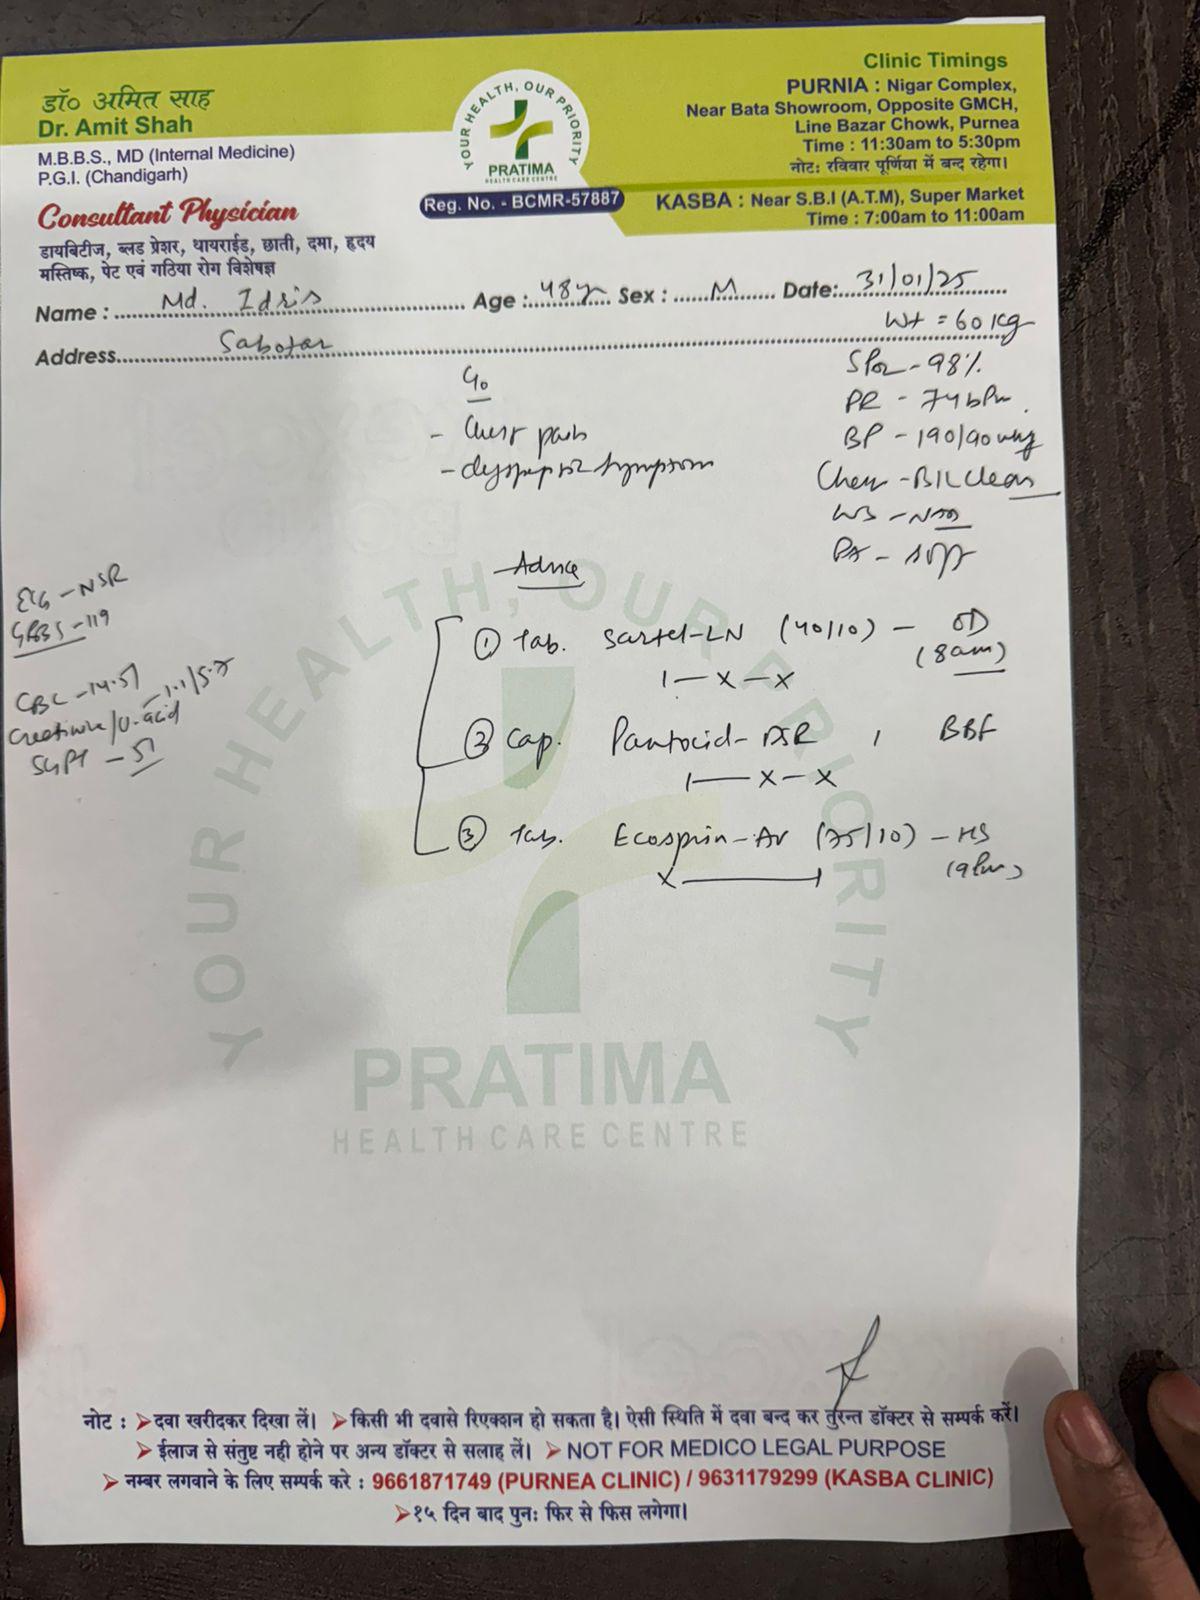 डॉ० अमित साह
Dr. Amit Shah
M.B.B.S., MD (Internal Medicine)
P.G.I. (Chandigarh)
Consultant Physician
डायबिटीज, ब्लड प्रेशर, थायराईड, छाती, दमा, हृदय
मस्तिष्क, पेट एवं गठिया रोग विशेषज्ञ
YOUR HEALTH, OUR PRIORITY
PRATIMA
HEALTH CARE CENTRE
Reg. No. - BCMR-57887
Clinic Timings
PURNIA : Nigar Complex,
Near Bata Showroom, Opposite GMCH,
Line Bazar Chowk, Purnea
Time : 11:30am to 5:30pm
नोट: रविवार पूर्णिया में बन्द रहेगा।
KASBA : Near S.B.I (A.T.M), Super Market
Time : 7:00am to 11:00am
Name : Md. Idris Age : 48 yr Sex : M Date: 31/01/25
Address
Wt = 60 kg
SPO2 - 98%
PR - 74 bpm
BP - 190/90 mmHg
Chest - B/L Clear
PA - soft
C/o
- Chest pain
- dyspeptic symptom
ECG - NSR
GRBS - 119
CBC - 14.5
Creatinine/U.acid - 1.1/5.7
SGPT - 51
Advice
① Tab. Sartel-LN (40/10) - OD
(8am)
1 - x - x
② Cap. Pantocid-DSR , BBF
1 - x - x
③ Tab. Ecosprin-AV (75/10) - HS
(9pm)
x - 1
YOUR HEALTH, OUR PRIORITY
PRATIMA
HEALTH CARE CENTRE
नोट : ➤दवा खरीदकर दिखा लें। ➤किसी भी दवासे रिएक्शन हो सकता है। ऐसी स्थिति में दवा बन्द कर तुरन्त डॉक्टर से सम्पर्क करें।
➤ ईलाज से संतुष्ट नही होने पर अन्य डॉक्टर से सलाह लें। ➤ NOT FOR MEDICO LEGAL PURPOSE
➤ नम्बर लगवाने के लिए सम्पर्क करे : 9661871749 (PURNEA CLINIC) / 9631179299 (KASBA CLINIC)
➤१५ दिन बाद पुनः फिर से फिस लगेगा।